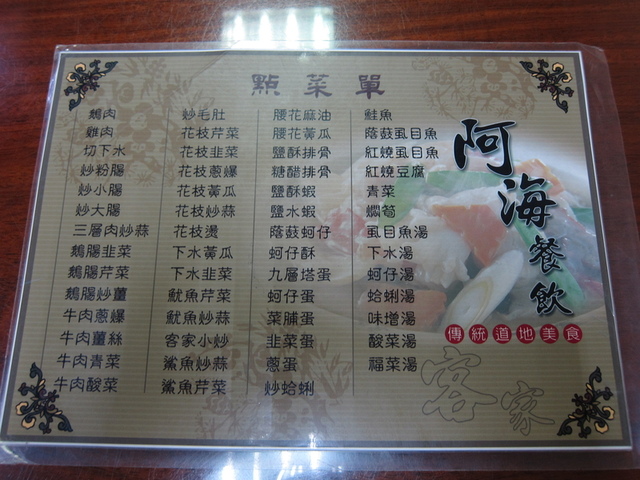 點菜單
鵝肉
雞肉
切下水
炒粉腸
炒小腸
炒大腸
三層肉炒蒜
鵝腸韭菜
鵝腸芹菜
鵝腸炒薑
牛肉蔥爆
牛肉薑絲
牛肉青菜
牛肉酸菜
炒毛肚
花枝芹菜
花枝韭菜
花枝蔥爆
花枝黃瓜
花枝炒蒜
花枝燙
下水黃瓜
下水韭菜
魷魚芹菜
魷魚炒蒜
客家小炒
鯊魚炒蒜
鯊魚芹菜
腰花麻油
腰花黃瓜
鹽酥排骨
糖醋排骨
鹽酥蝦
鹽水蝦
蔭菝蚵仔
蚵仔酥
九層塔蛋
蚵仔蛋
菜脯蛋
韭菜蛋
蔥蛋
炒蛤蜊
鮭魚
蔭菝虱目魚
紅燒虱目魚
紅燒豆腐
青菜
爛筍
虱目魚湯
下水湯
蚵仔湯
蛤蜊湯
味增湯
酸菜湯
福菜湯
阿海餐飲
傳統道地美食
客家